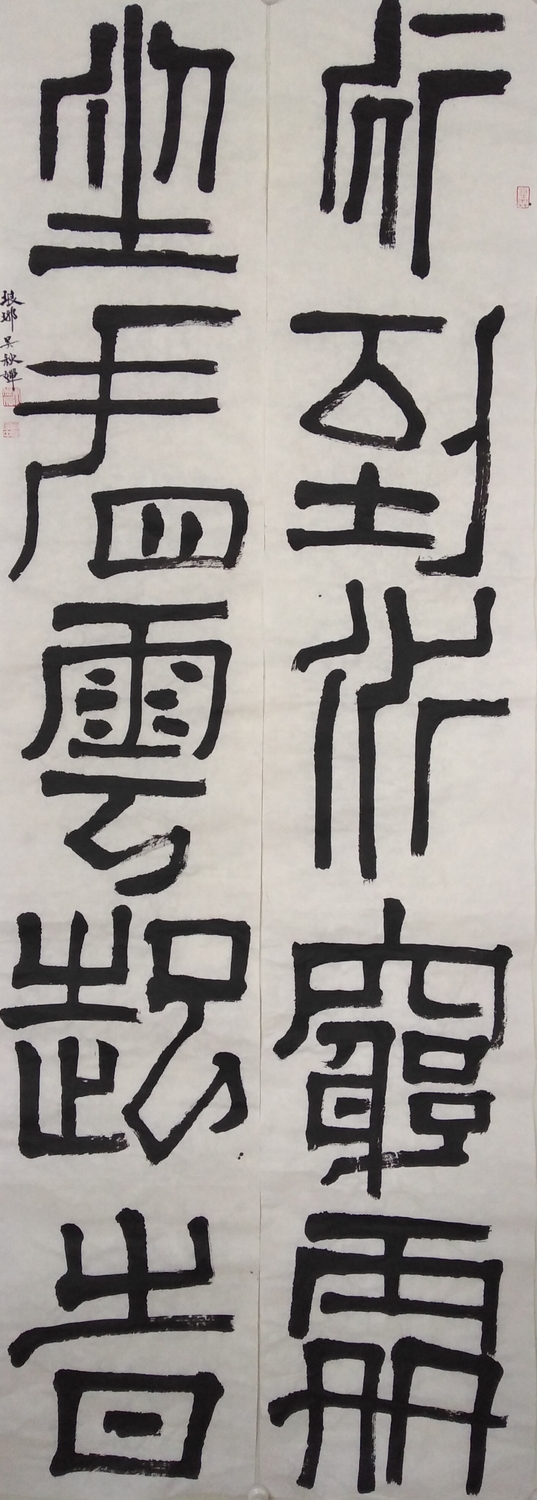 行到水窮處
坐看雲起旹
琅琊吴秋